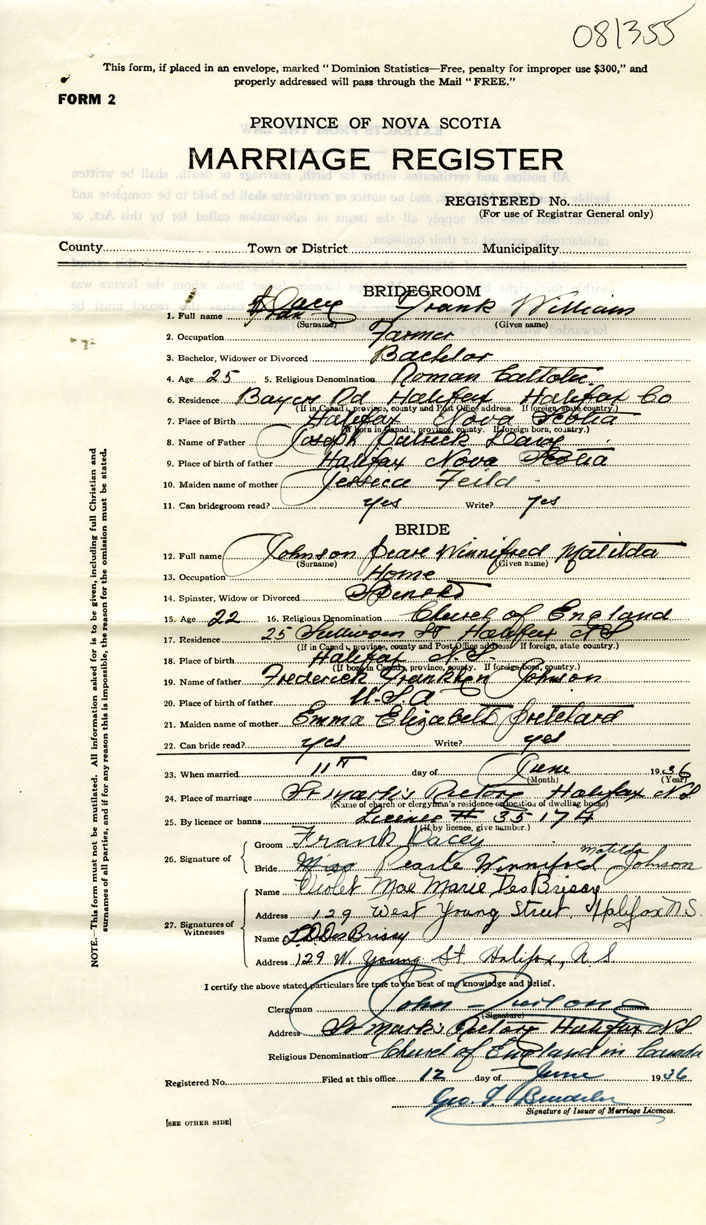 081355
This form, if placed in an envelope, marked "Dominion Statistics—Free, penalty for improper use $300," and
properly addressed will pass through the Mail "FREE."
FORM 2
PROVINCE OF NOVA SCOTIA
MARRIAGE REGISTER
REGISTERED No.
(For use of Registrar General only)
County Town or District Municipality
BRIDEGROOM
1. Full name Dacey Frank William
(Surname) (Given name)
2. Occupation Farmer
3. Bachelor, Widower or Divorced Bachelor
4. Age 25 5. Religious Denomination Roman Catholic
6. Residence Bayers Rd Halifax Halifax Co
(If in Canada, province, county and Post Office address. If foreign, state country.)
7. Place of Birth Halifax Nova Scotia
(If born in Canada, province, county. If foreign born, country.)
8. Name of Father Joseph Patrick Dacey
9. Place of birth of father Halifax Nova Scotia
10. Maiden name of mother Jessica Feild
11. Can bridegroom read? yes Write? yes
BRIDE
12. Full name Johnson Pearl Winnifred Matilda
(Surname) (Given name)
13. Occupation Home
14. Spinster, Widow or Divorced Spinster
15. Age 22 16. Religious Denomination Church of England
17. Residence 25 Sullivan St Halifax NS
(If in Canada, province, county and Post Office address. If foreign, state country.)
18. Place of birth Halifax N.S.
(If born in Canada, province, county. If foreign born, country.)
19. Name of father Frederick Franklin Johnson
20. Place of birth of father U.S.A
21. Maiden name of mother Emma Elizabeth Pritchard
22. Can bride read? yes Write? yes
23. When married 11th day of June 1936
(Month) (Year)
24. Place of marriage St Mark's Rectory Halifax NS
(Name of church or clergyman's residence or location of dwelling house)
25. By licence or banns License # 35174
(If by licence, give number.)
26. Signature of
Groom Frank Dacey
Bride Miss Pearle Winnifred Matilda Johnson
27. Signatures of Witnesses
Name Violet Mae Marie DesBrisay
Address 129 West Young Street, Halifax N.S.
Name L.D. DesBrisay
Address 129 W. Young St. Halifax, N.S
I certify the above stated particulars are true to the best of my knowledge and belief.
Clergyman John
(Signature)
Address St Mark's Rectory Halifax NS
Religious Denomination Church of England in Canada
Registered No. Filed at this office 12 day of June 1936
Geo.
Signature of Issuer of Marriage Licences.
[SEE OTHER SIDE]
NOTE.—This form must not be mutilated. All information asked for is to be given, including full Christian and
surnames of all parties, and if for any reason this is impossible, the reason for the omission must be stated.